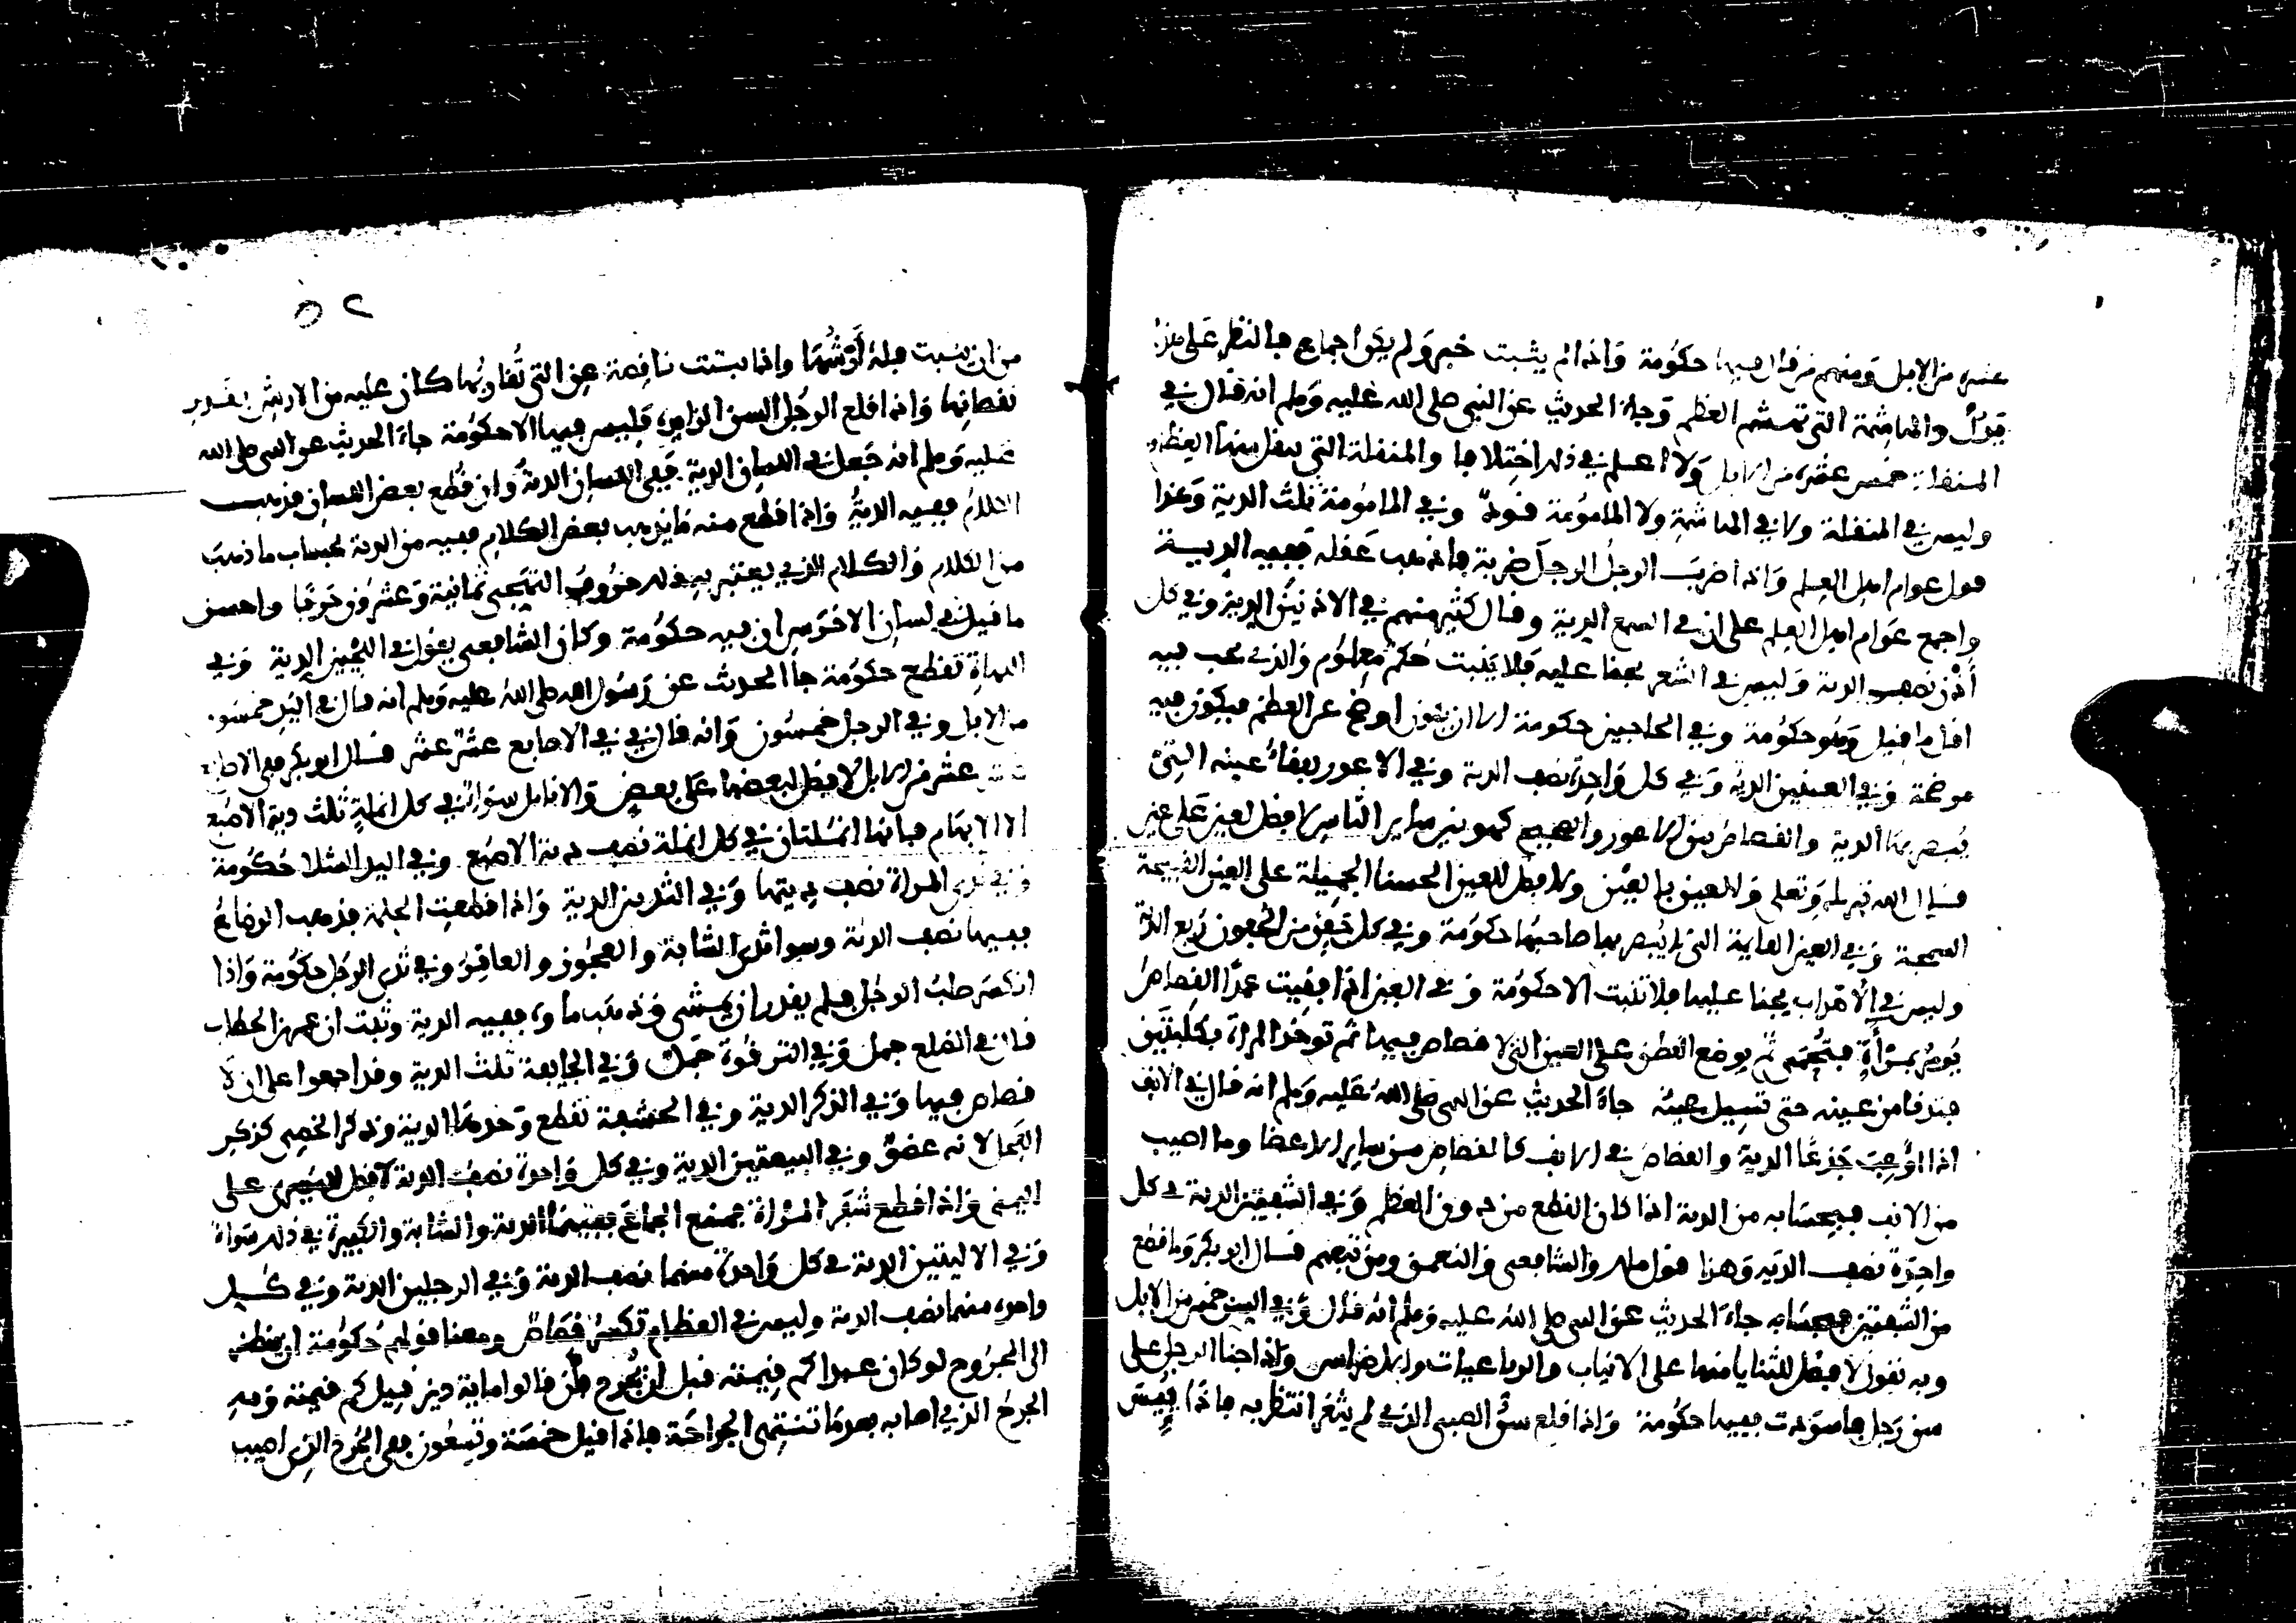 عشر من الابل ومنهم من قال فيها حكومة واذا لم يثبت خبر ولم يكن اجماع فالنظر على هذا
يدل والهاشمة التي تهشم العظم وجاء الحديث عن النبي صلى الله عليه وسلم انه قال في
المنقلة خمس عشرة من الابل ولا اعلم في ذلك اختلافا والمنقلة التي ينقل منها العظم
وليس في المنقلة ولا في الهاشمة ولا المامومة قود وفي المامومة ثلث الدية وهذا
قول عوام اهل العلم واذا ضرب الرجل الرجل ضربة فاذهب عقله ففيه الدية
واجمع عوام اهل العلم على ان في السمع الدية وقال كثير منهم في الاذنين الدية وفي كل
اذن نصف الدية وليس في الشعر يجنا عليه فلا ينبت حكم معلوم والذي يجب فيه
اقل ما قيل وهو حكومة وفي الحاجبين حكومة الا ان يكون اوضح عن العظم فيكون فيه
موضحة وفي العينين الدية وفي كل واحدة نصف الدية وفي الاعور يفقأ عينه التي
يبصر بها الدية والقصاص بين الاعور والصحيح كهو بين سائر الناس لا فضل لعين على عين
قال الله تبارك وتعلى والعين بالعين ولا فضل للعين الحسنا الجميلة على العين القبيحة
السمجة وفي العين القايمة التي لا يبصر بها صاحبها حكومة وفي كل جفن من الجفون ربع الدية
وليس في الاهداب يجنا عليها فلا تنبت الا حكومة وفي العين اذا فقيت عمدا القصاص
يومر بمرأة فتحمى ثم يوضع القطن على العين التي لا قصاص فيها ثم توخذ المراة بكلبتين
فتدنا من عينه حتى تسيل عينه جاء الحديث عن النبي صلى الله عليه وسلم انه قال في الانف
اذا اوعيت جدعا الدية والقصاص في الانف كالقصاص من سائر الاعضا وما اصيب
من الانف فبحسابه من الدية اذا كان القطع من دون العظم وفي الشفتين الدية في كل
واحدة نصف الدية وهذا قول ملك والشافعي والنعمن ومن تبعهم قال ابو بكر وما قطع
من الشفتين فبحسابه جاء الحديث عن النبي صلى الله عليه وسلم انه قال وفي السن خمس من الابل
وبه نقول لا فضل للثنايا منها على الانياب والرباعيات والاضراس واذا جنا الرجل على
سن رجل فاسودت ففيها حكومة واذا قلع سن الصبي الذي لم يثغر انتظر به فاذا ييس
٥٢
من ان ينبت فله ارشها واذا نبتت ناقصة عن التي تقاربها كان عليه من الارش بقدر
نقصانها واذا قلع الرجل السن الزايدة فليس فيها الا حكومة جاء الحديث عن النبي صلى الله
عليه وسلم انه جعل في اللسان الدية ففي اللسان الدية وان قطع بعض اللسان فذهب
الكلام ففيه الدية واذا قطع منه ما يذهب بعض الكلام ففيه من الدية بحساب ما ذهب
من الكلام والكلام الذي يعتبر به ذلك حروف التهجى ثمانية وعشرون حرفا واحسن
ما قيل في لسان الاخرس ان فيه حكومة وكان الشافعي يقول في اللحيين الدية وفي
اللهاة تقطع حكومة جا الحديث عن رسول الله صلى الله عليه وسلم انه قال في اليد خمسون
من الابل وفي الرجل خمسون وانه قال في الاصابع عشر عشر قال ابو بكر ففي الاصابع
عشر من الابل لا فضل لبعضها على بعض والانامل سواء في كل انملة ثلث دية الاصبع
الا الابهام فانها انملتان في كل انملة نصف دية الاصبع وفي اليد الشلا حكومة
وفي ثدي المراة نصف ديتها وفي الثديين الدية واذا قطعت الحلمة فذهب الرضاع
ففيها نصف الدية وسوا ثدي الشابة والعجوز والعاقر وفي ثدي الرجل حكومة واذا
انكسر صلب الرجل فلم يقدر ان يمشي وذهب ماوه ففيه الدية وثبت ان عمر بن الخطاب
قال في الضلع جمل وفي الترقوة جمل وفي الجايفة ثلث الدية وقد اجمعوا على ان لا
قصاص فيها وفي الذكر الدية وفي الحشفة تقطع وحدها الدية وذكر الخصي كذكر
الفحل لانه عضو وفي البيضتين الدية وفي كل واحدة نصف الدية لا فضل لليسرى على
اليمنى واذا قطع شفر المراة فمنع الجماع ففيهما الدية والشابة والكبيرة في ذلك سواء
وفي الاليتين الدية في كل واحدة منهما نصف الدية وفي الرجلين الدية وفي كل
واحدة منهما نصف الدية وليس في العظام تكسر قصاص ومعنا قولهم حكومة ان ينظر
الى المجروح لو كان عبدا كم قيمته قبل ان يجرح فان قالوا ماية دينر قيل كم قيمته وبه
الجرح الذي اصابه بعد ما تنتهي الجراحة فاذا قيل خمسة وتسعون ففي الجرح الذي اصيب